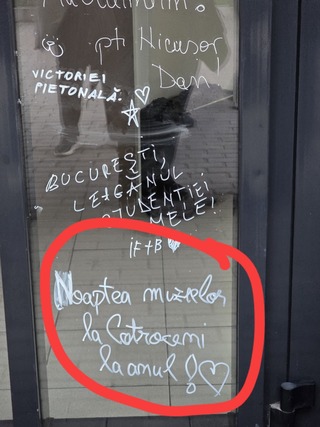 pt Nicușor
Dan!
VICTORIEI
PIETONALĂ.
BUCUREȘTI,
LEAGĂNUL
STUDENȚIEI
MELE!
iF+B
Noaptea muzeelor
la Cotroceni
la anul!